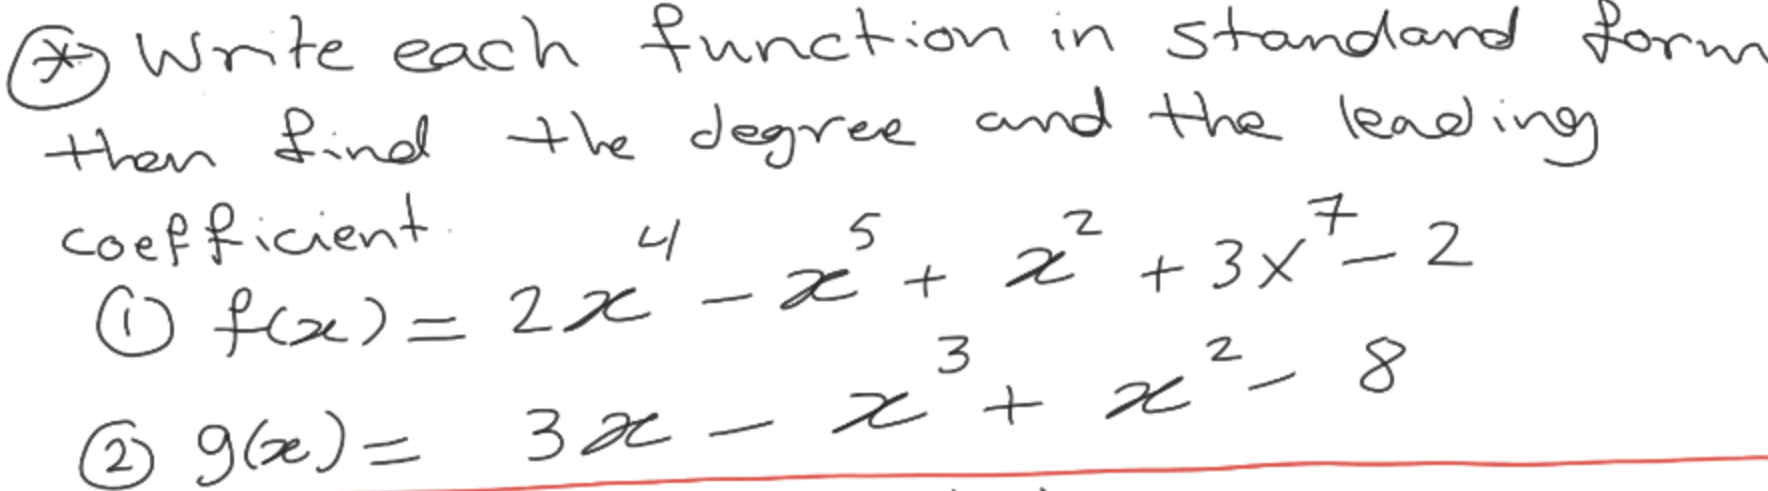 ⊛ Write each function in standard form
then find the degree and the leading
coefficient.
① f(x) = 2x⁴ − x⁵ + x² + 3x⁷ − 2
② g(x) = 3x − x³ + x² − 8